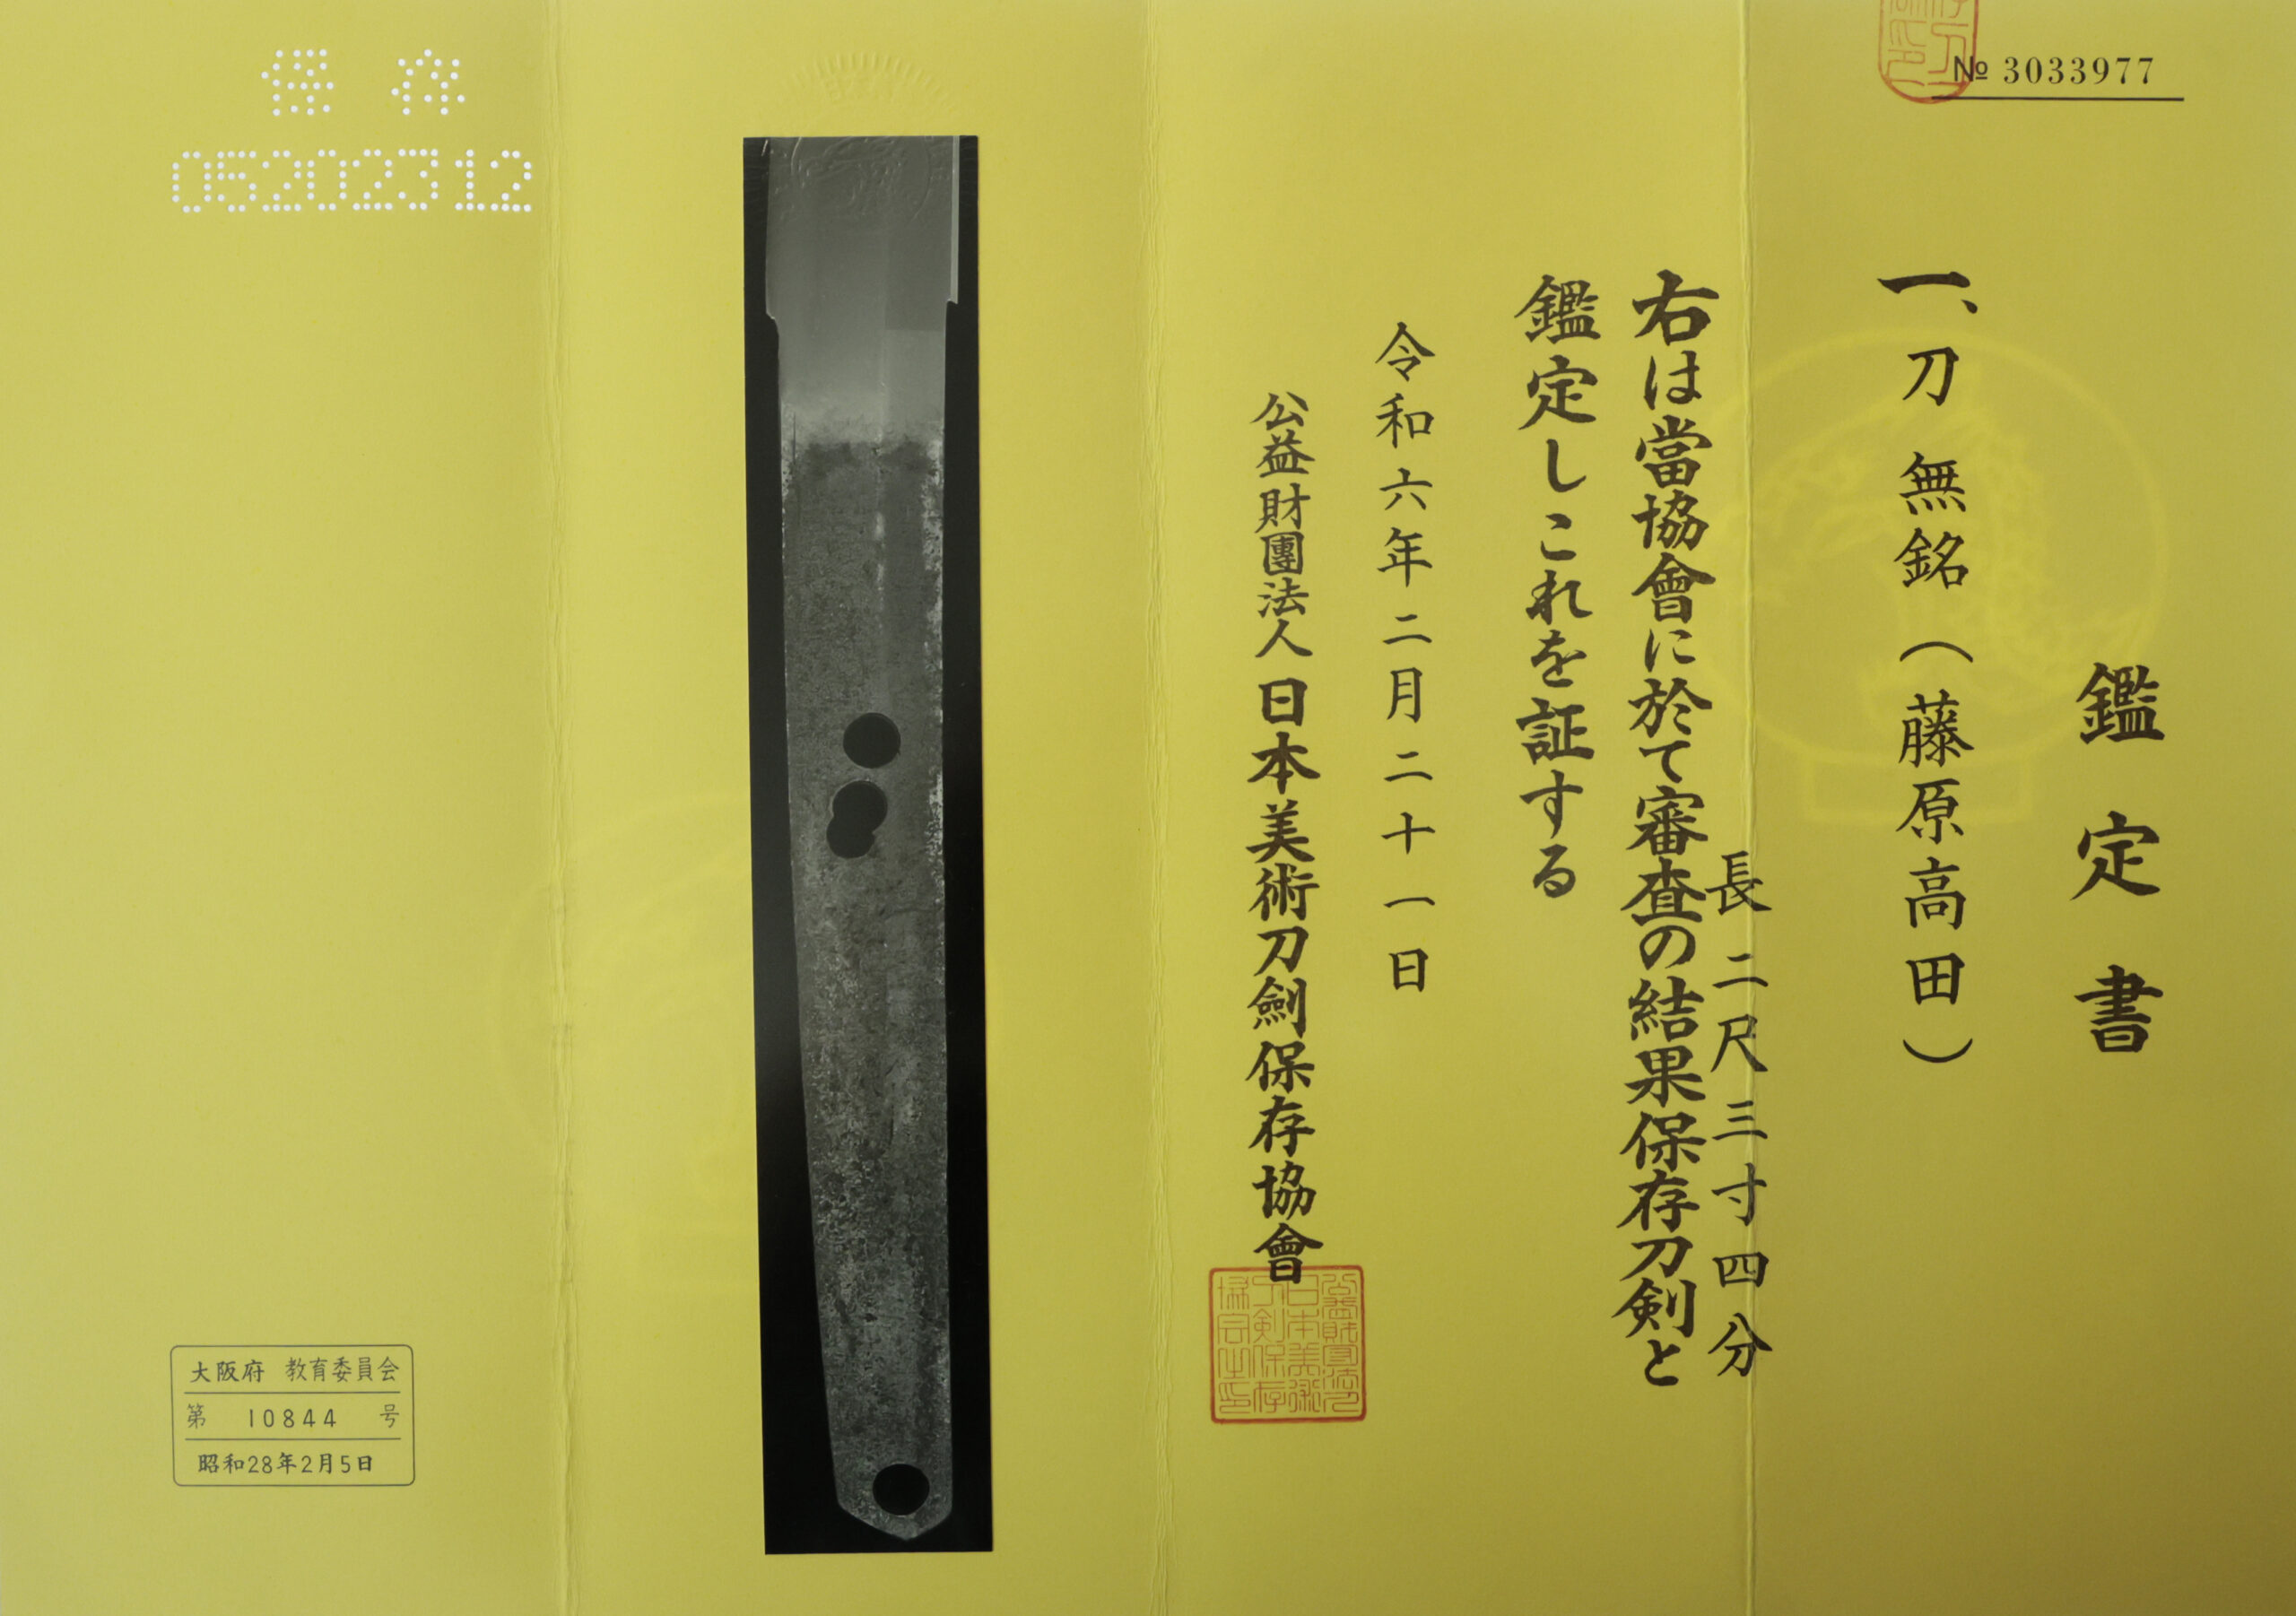 № 3033977
鑑定書
一、刀 無銘（藤原高田）
長 二尺三寸四分
右は當協會に於て審査の結果保存刀剣と
鑑定しこれを証する
令和六年二月二十一日
公益財團法人 日本美術刀劍保存協會
保存
05202312
大阪府 教育委員会
第 10844 号
昭和28年2月5日